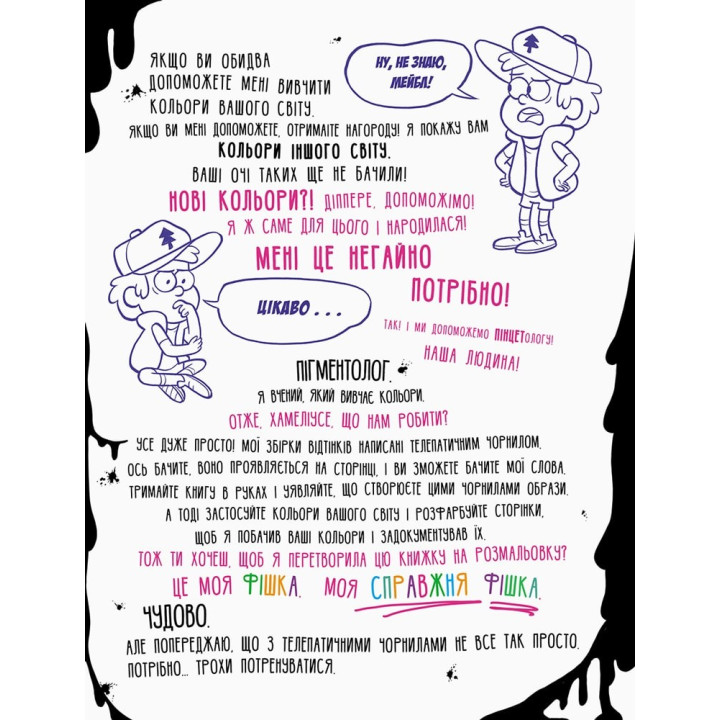 ЯКЩО ВИ ОБИДВА
ДОПОМОЖЕТЕ МЕНІ ВИВЧИТИ
КОЛЬОРИ ВАШОГО СВІТУ.
НУ, НЕ ЗНАЮ,
МЕЙБЛ!
ЯКЩО ВИ МЕНІ ДОПОМОЖЕТЕ, ОТРИМАЇТЕ НАГОРОДУ! Я ПОКАЖУ ВАМ
КОЛЬОРИ ІНШОГО СВІТУ.
ВАШІ ОЧІ ТАКИХ ЩЕ НЕ БАЧИЛИ!
НОВІ КОЛЬОРИ?! ДІППЕРЕ, ДОПОМОЖІМО!
Я Ж САМЕ ДЛЯ ЦЬОГО І НАРОДИЛАСЯ!
МЕНІ ЦЕ НЕГАЙНО
ПОТРІБНО!
ЦІКАВО . . .
ТАК! І МИ ДОПОМОЖЕМО ПІНЦЕТОЛОГУ!
НАША ЛЮДИНА!
ПІГМЕНТОЛОГ.
Я ВЧЕНИЙ, ЯКИЙ ВИВЧАЄ КОЛЬОРИ.
ОТЖЕ, ХАМЕЛІУСЕ, ЩО НАМ РОБИТИ?
УСЕ ДУЖЕ ПРОСТО! МОЇ ЗБІРКИ ВІДТІНКІВ НАПИСАНІ ТЕЛЕПАТИЧНИМ ЧОРНИЛОМ.
ОСЬ БАЧИТЕ, ВОНО ПРОЯВЛЯЄТЬСЯ НА СТОРІНЦІ, І ВИ ЗМОЖЕТЕ БАЧИТЕ МОЇ СЛОВА.
ТРИМАЙТЕ КНИГУ В РУКАХ І УЯВЛЯЙТЕ, ЩО СТВОРЮЄТЕ ЦИМИ ЧОРНИЛАМИ ОБРАЗИ.
А ТОДІ ЗАСТОСУЙТЕ КОЛЬОРИ ВАШОГО СВІТУ І РОЗФАРБУЙТЕ СТОРІНКИ,
ЩОБ Я ПОБАЧИВ ВАШІ КОЛЬОРИ І ЗАДОКУМЕНТУВАВ ЇХ.
ТОЖ ТИ ХОЧЕШ, ЩОБ Я ПЕРЕТВОРИЛА ЦЮ КНИЖКУ НА РОЗМАЛЬОВКУ?
ЦЕ МОЯ ФІШКА. МОЯ СПРАВЖНЯ ФІШКА.
ЧУДОВО.
АЛЕ ПОПЕРЕДЖАЮ, ЩО З ТЕЛЕПАТИЧНИМИ ЧОРНИЛАМИ НЕ ВСЕ ТАК ПРОСТО.
ПОТРІБНО... ТРОХИ ПОТРЕНУВАТИСЯ.